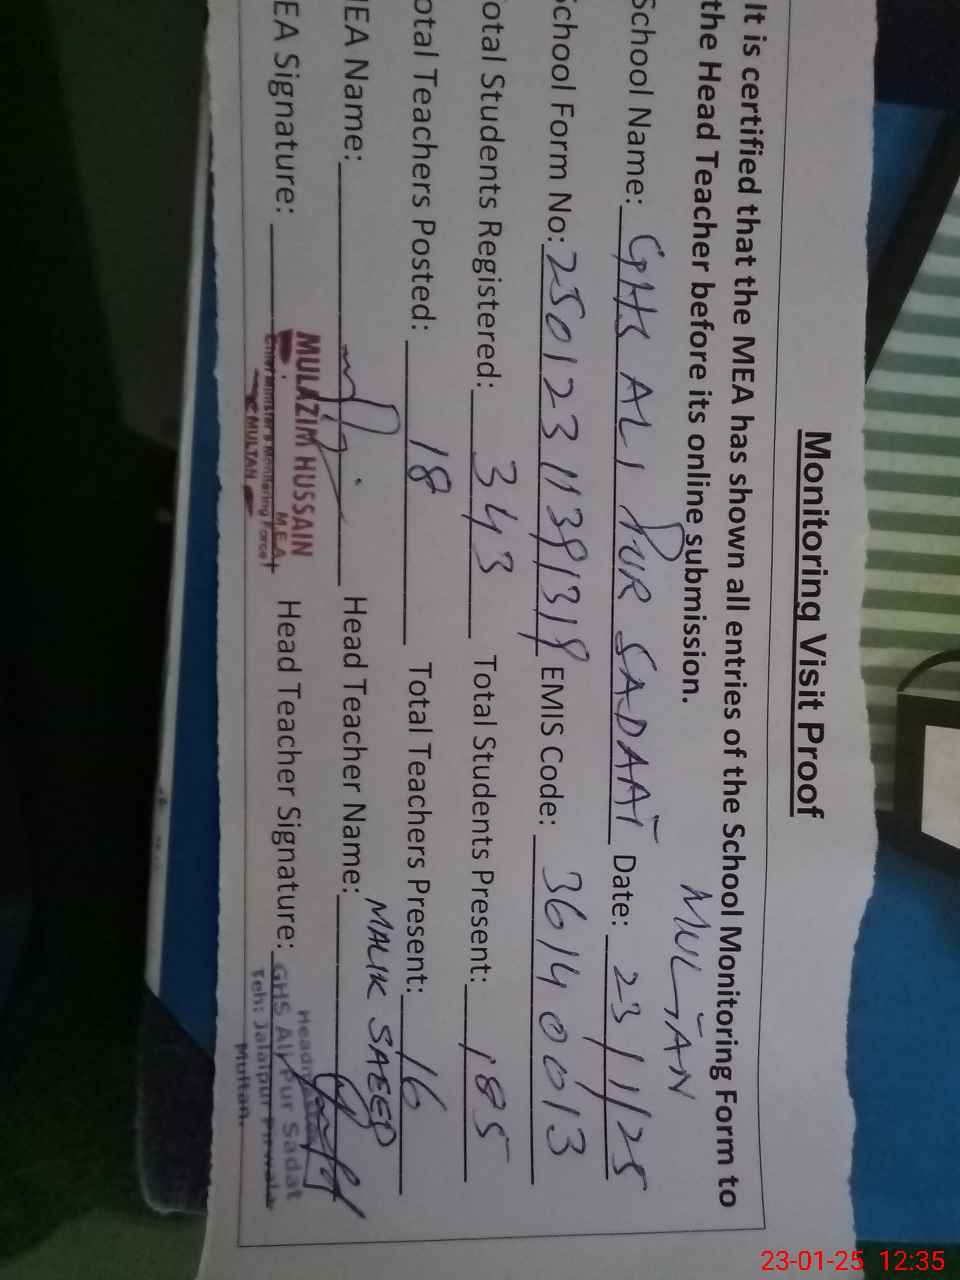 Monitoring Visit Proof
It is certified that the MEA has shown all entries of the School Monitoring Form to
the Head Teacher before its online submission.
MULTAN
School Name: GHS ALI PUR SADAAT Date: 23/1/25
School Form No: 25012311391319 EMIS Code: 36140013
otal Students Registered: 343 Total Students Present: 185
otal Teachers Posted: 18 Total Teachers Present: 16
MALIK SAEED
EA Name: Head Teacher Name:
EA Signature: Head Teacher Signature:
MULAZIM HUSSAIN
M.E.A
Chief Minister's Monitoring Force
MULTAN
GHS Ali Pur Sadat
Teh: Jalalpur Pirwala
Multan.
23-01-25 12:35